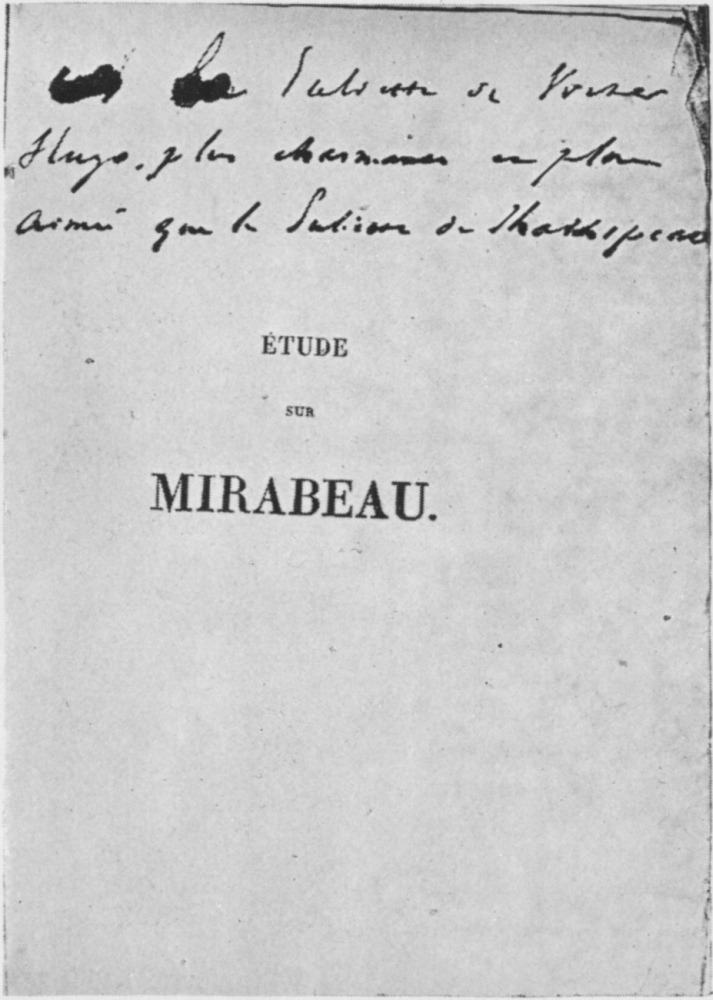 à la Juliette de Victor
Hugo, plus charmante et plus
aimée que la Juliette de Shakespeare
ÉTUDE
SUR
MIRABEAU.